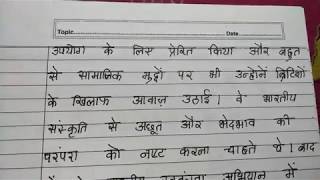 Topic
Date
उपयोग के लिए प्रेरित किया और बहुत
से सामाजिक मुद्दों पर भी उन्होनें ब्रिटिशों
के खिलाफ आवाज़ उठाई। वे भारतीय
संस्कृति से अछूत और भेदभाव की
परंपरा को नष्ट करना चाहते थे। बाद
में स्वतंत्रता अभियान में